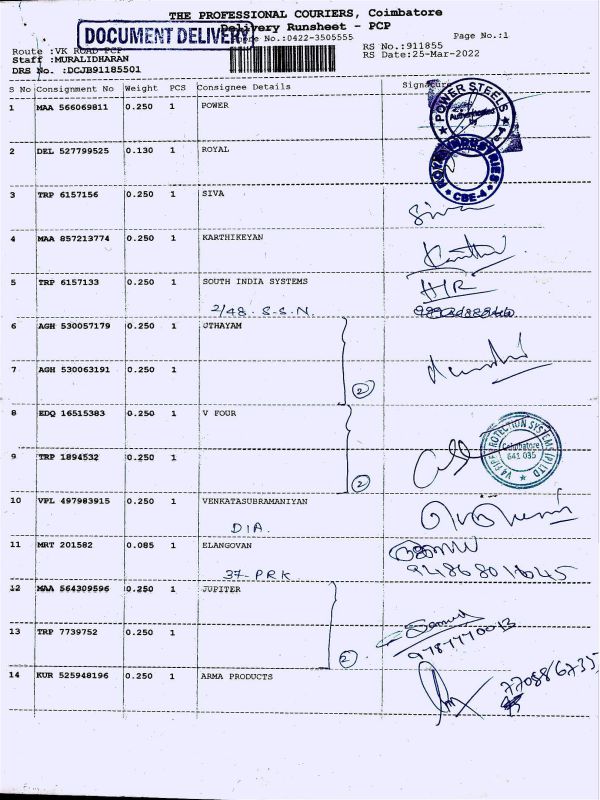 THE PROFESSIONAL COURIERS, Coimbatore
DOCUMENT DELIVERY
Delivery Runsheet - PCP
Phone No.:0422-3505555
Page No.:1
Route :VK ROAD PCP
RS No.:911855
Staff :MURALIDHARAN
RS Date:25-Mar-2022
DRS No. :DCJB91185501
S No Consignment No Weight PCS Consignee Details Signature
1 MAA 566069811 0.250 1 POWER
POWER STEELS
2 DEL 527799525 0.130 1 ROYAL
ROYAL INDUSTRIES
CBE-4
3 TRP 6157156 0.250 1 SIVA
Siva
4 MAA 857213774 0.250 1 KARTHIKEYAN
5 TRP 6157133 0.250 1 SOUTH INDIA SYSTEMS
2/48. S.S.N.
6 AGH 530057179 0.250 1 UTHAYAM
7 AGH 530063191 0.250 1
2
8 EDQ 16515383 0.250 1 V FOUR
V4 FIRE PROTECTION SYSTEMS (P) LTD
Coimbatore
641 035
9 TRP 1894532 0.250 1
2
10 VPL 497983915 0.250 1 VENKATASUBRAMANIYAN
DIA.
11 MRT 201582 0.085 1 ELANGOVAN
37-PRK
12 MAA 564309596 0.250 1 JUPITER
13 TRP 7739752 0.250 1
2
9787770013
14 KUR 525948196 0.250 1 ARMA PRODUCTS